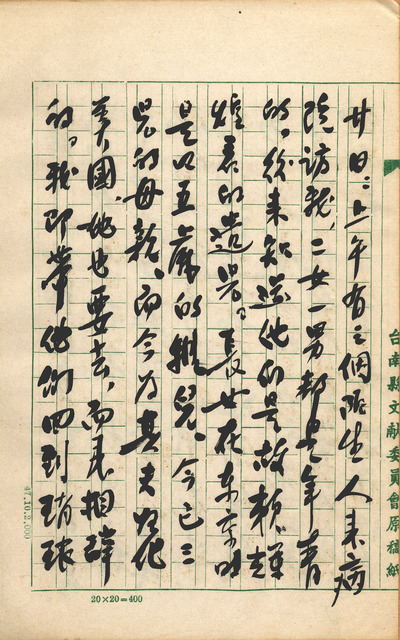 台南縣文献委員會原稿紙
廿日:上午有三個陌生人來病
院訪我,二女一男都是年青
的,後來知道他們是故賴
煌君的遺児。長女在東京時
是只五歲的雛兒、今已三
児的母親、而今為其夫
美國、她也要去,而相辭
的,我即帶他們回到琑琅
47.10.2,000
20×20=400